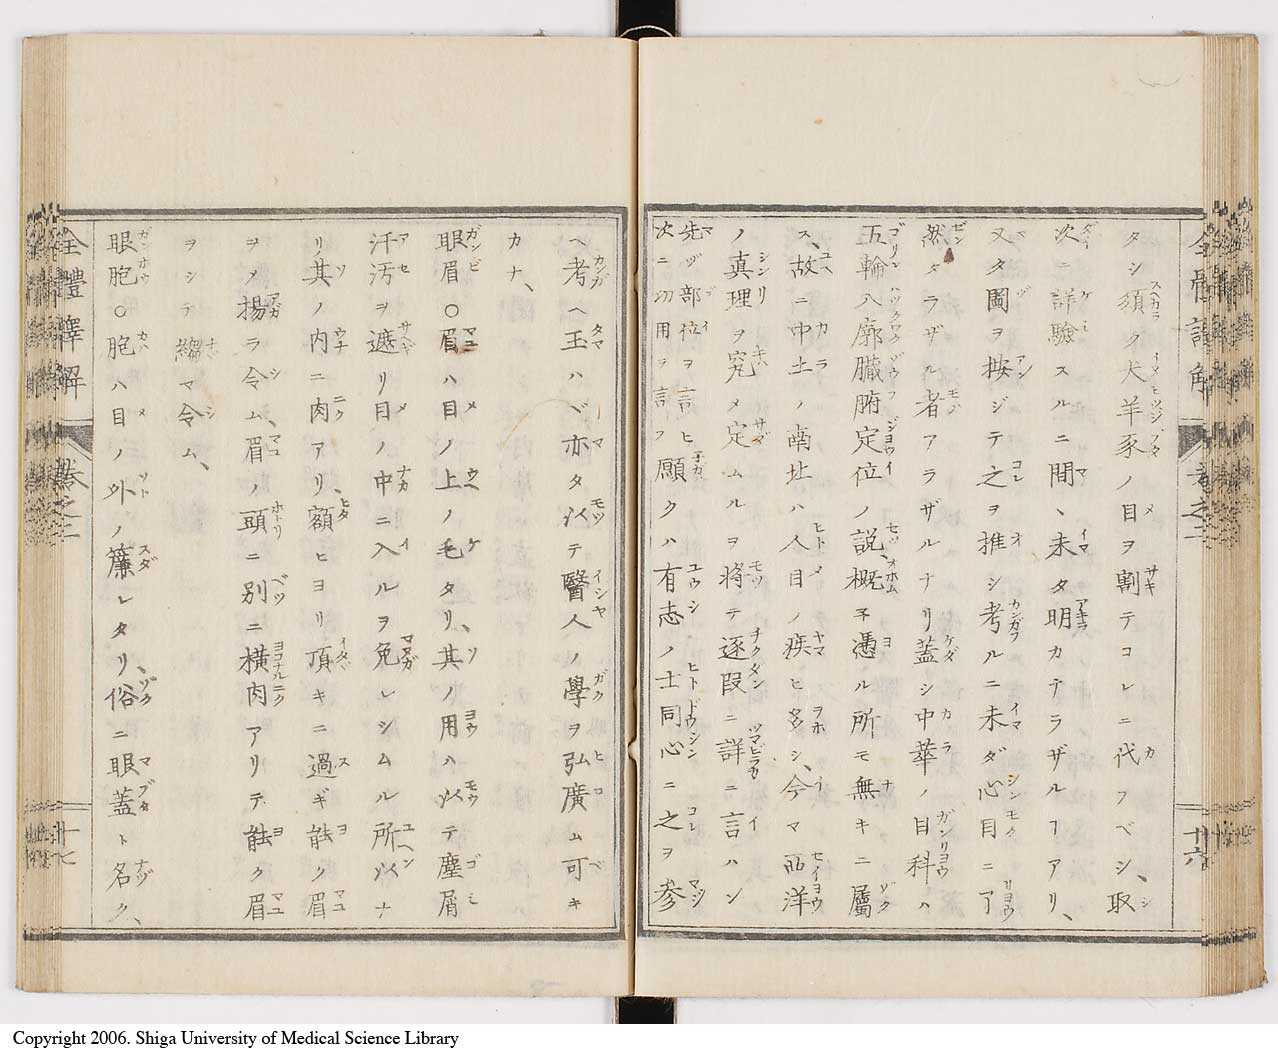 タシ須ク犬羊豕ノ目ヲ割テコレニ代フベシ、取
次ニ詳驗スルニ間、未タ明カナラザルヿアリ、
又タ圖ヲ按ジテ之ヲ推シ考ルニ未ダ心目ニ了
然タラザル者アラザルナリ蓋シ中華ノ目科ハ
五輪八廓臓腑定位ノ説、概子憑ル所モ無キニ屬
ス、故ニ中土ノ南北ハ人目ノ疾ヒ多シ、今マ西洋
ノ真理ヲ究メ定ムルヲ將テ逐段ニ詳ニ言ハン
先ヅ部位ヲ言ヒ
次ニ功用ヲ言フ
願クハ有志ノ士同心ニ之ヲ參
ヘ考ヘ玉ハバ亦タ以テ醫人ノ學ヲ弘廣ム可キ
カナ、
眼眉○眉ハ目ノ上ノ毛タリ、其ノ用ハ以テ塵屑
汗汚ヲ遮リ目ノ中ニ入ルヲ免レシムル所以ナ
リ其ノ内ニ肉アリ、額ヒヨリ頂キニ過ギ能ク眉
ヲメ揚ラ令ム、眉ノ頭ニ別ニ横肉アリテ能ク眉
ヲシテ縐マ令ム、
眼胞○胞ハ目ノ外ノ簾レタリ、俗ニ眼蓋ト名ク、
全體譯解
巻之二
十六
十七
Copyright 2006. Shiga University of Medical Science Library